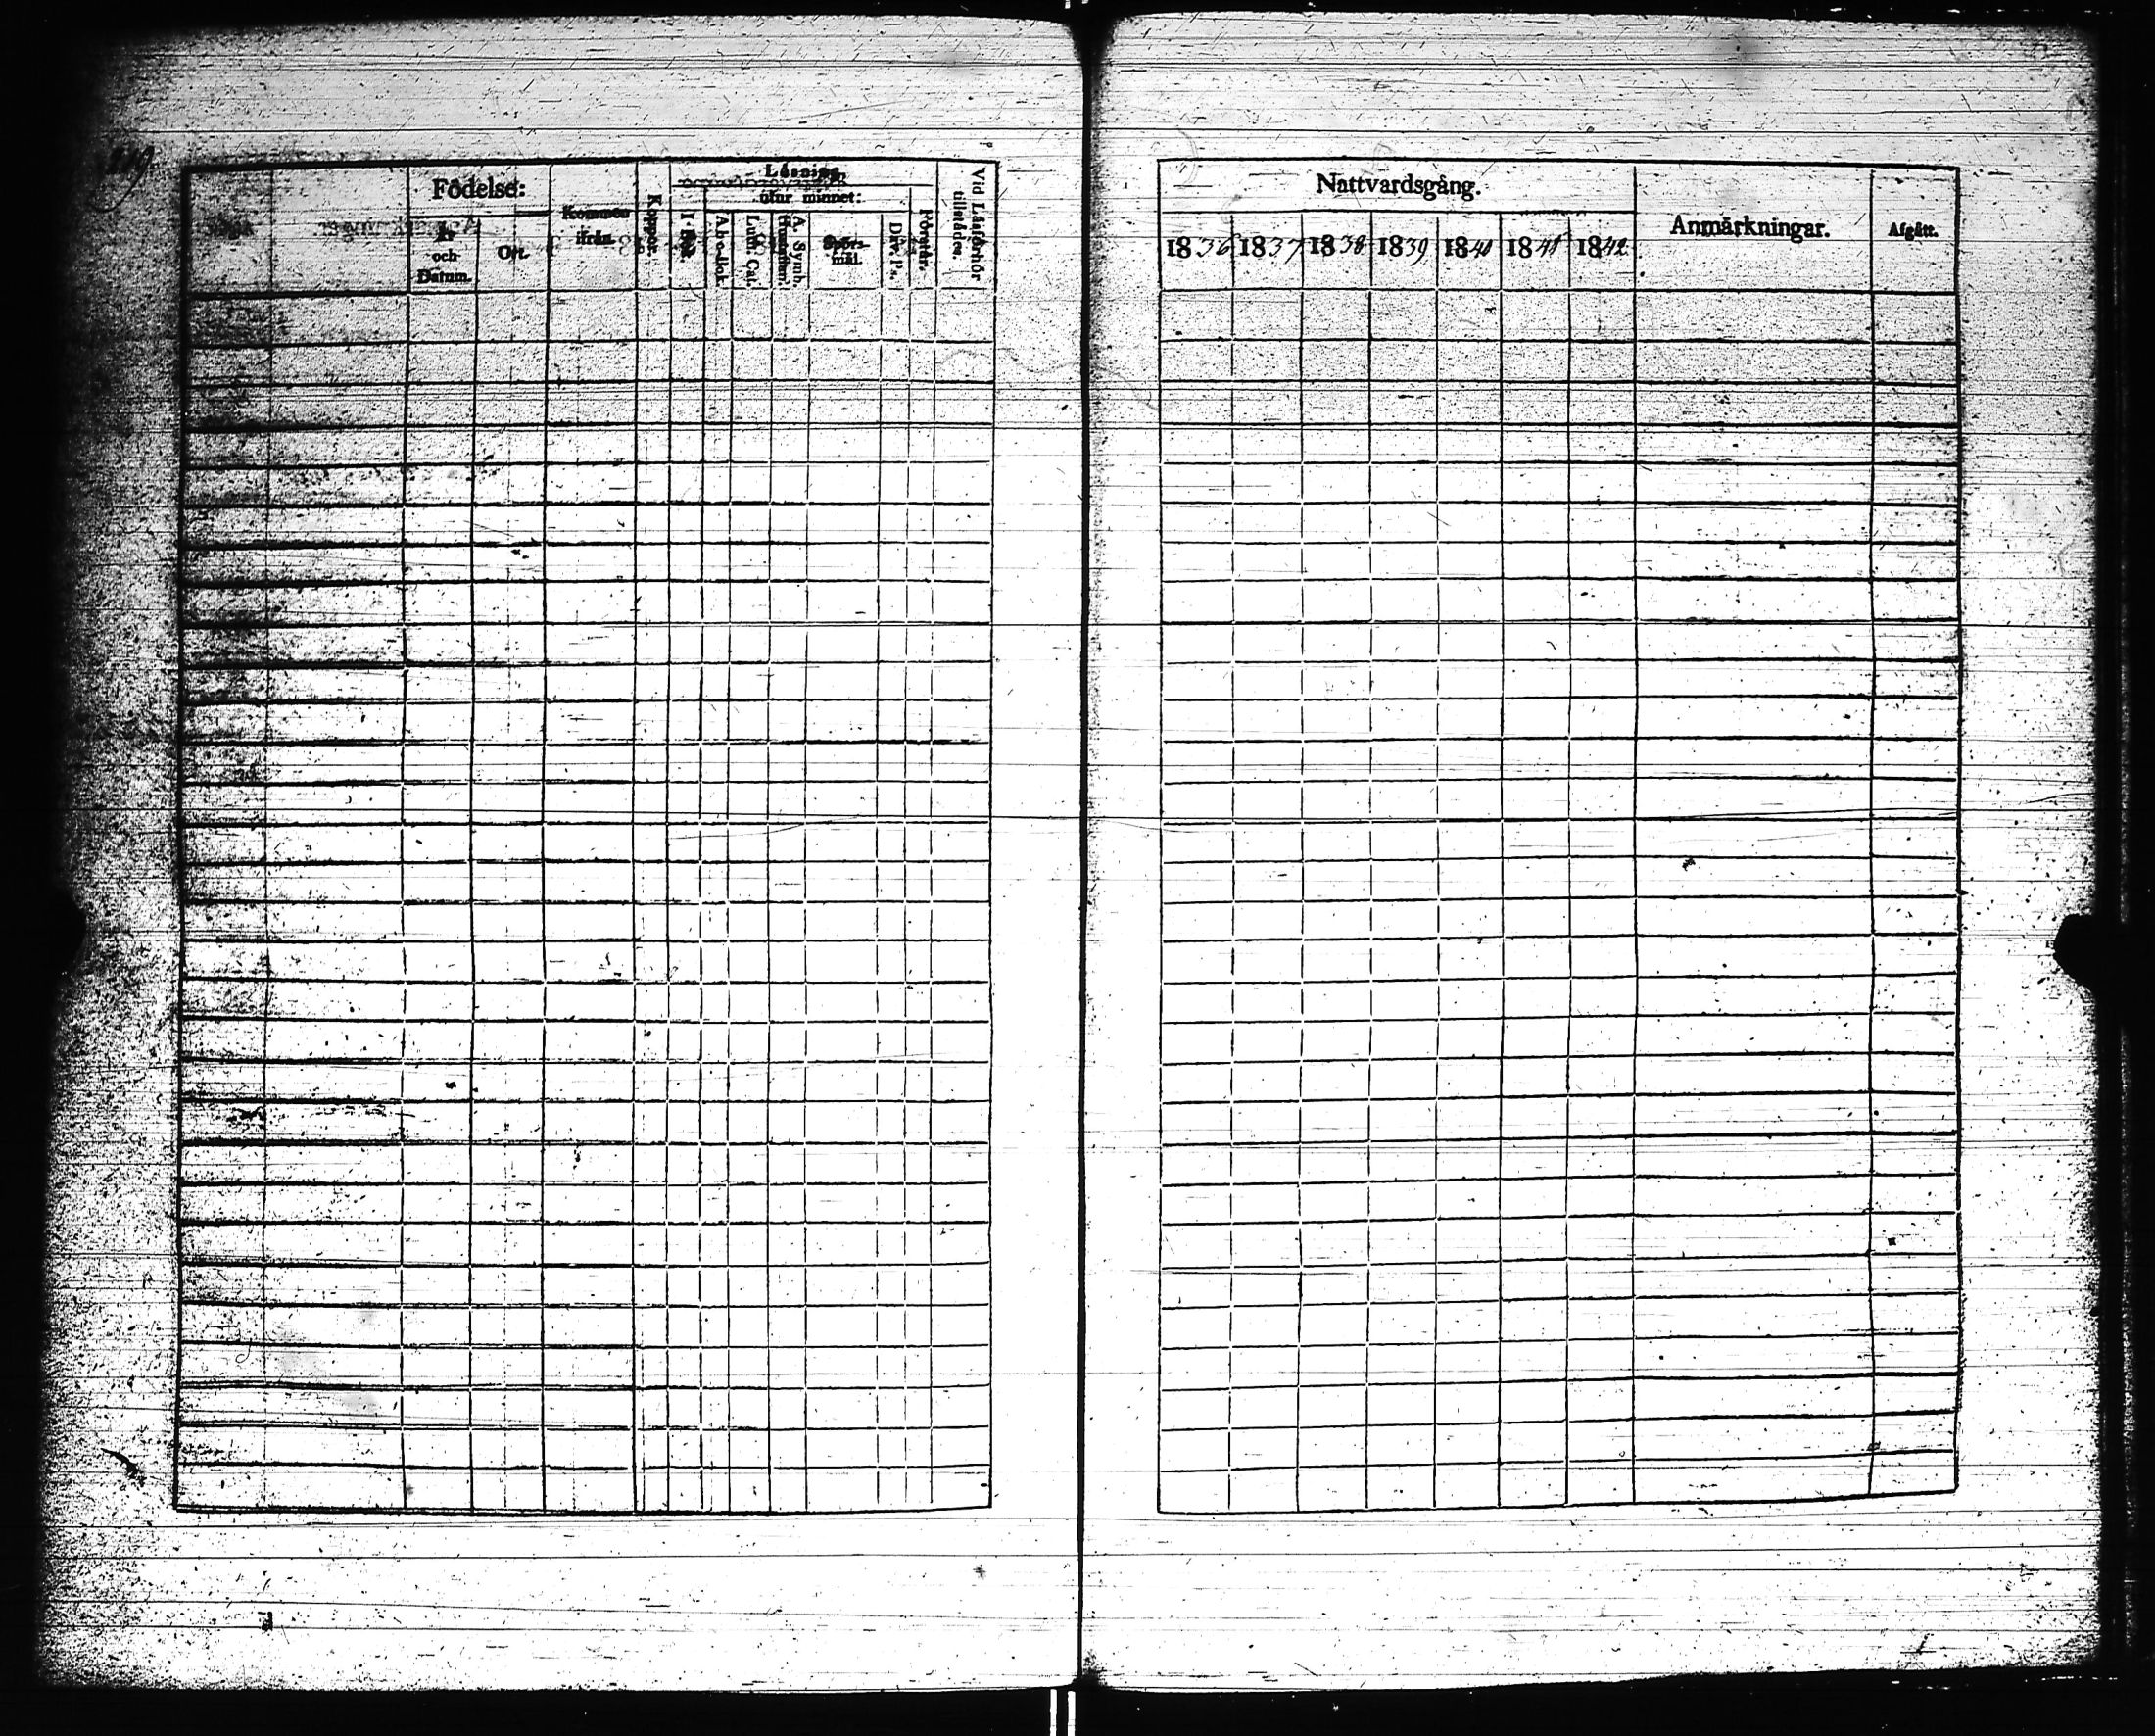 Födelse:
År
och
Datum.
Ort.
Kommen
ifrån.
Koppor.
Läsning
I bok
utur minnet:
A.b.c.-Bok.
Luth. Cat.
A. Symb.
Spörs-
mål.
Dav. Ps.
Förstår.
Vid Läsförhör
tillstädes.
Nattvardsgång.
1836 1837 1838 1839 1840 1841 1842
Anmärkningar.
Afgått.